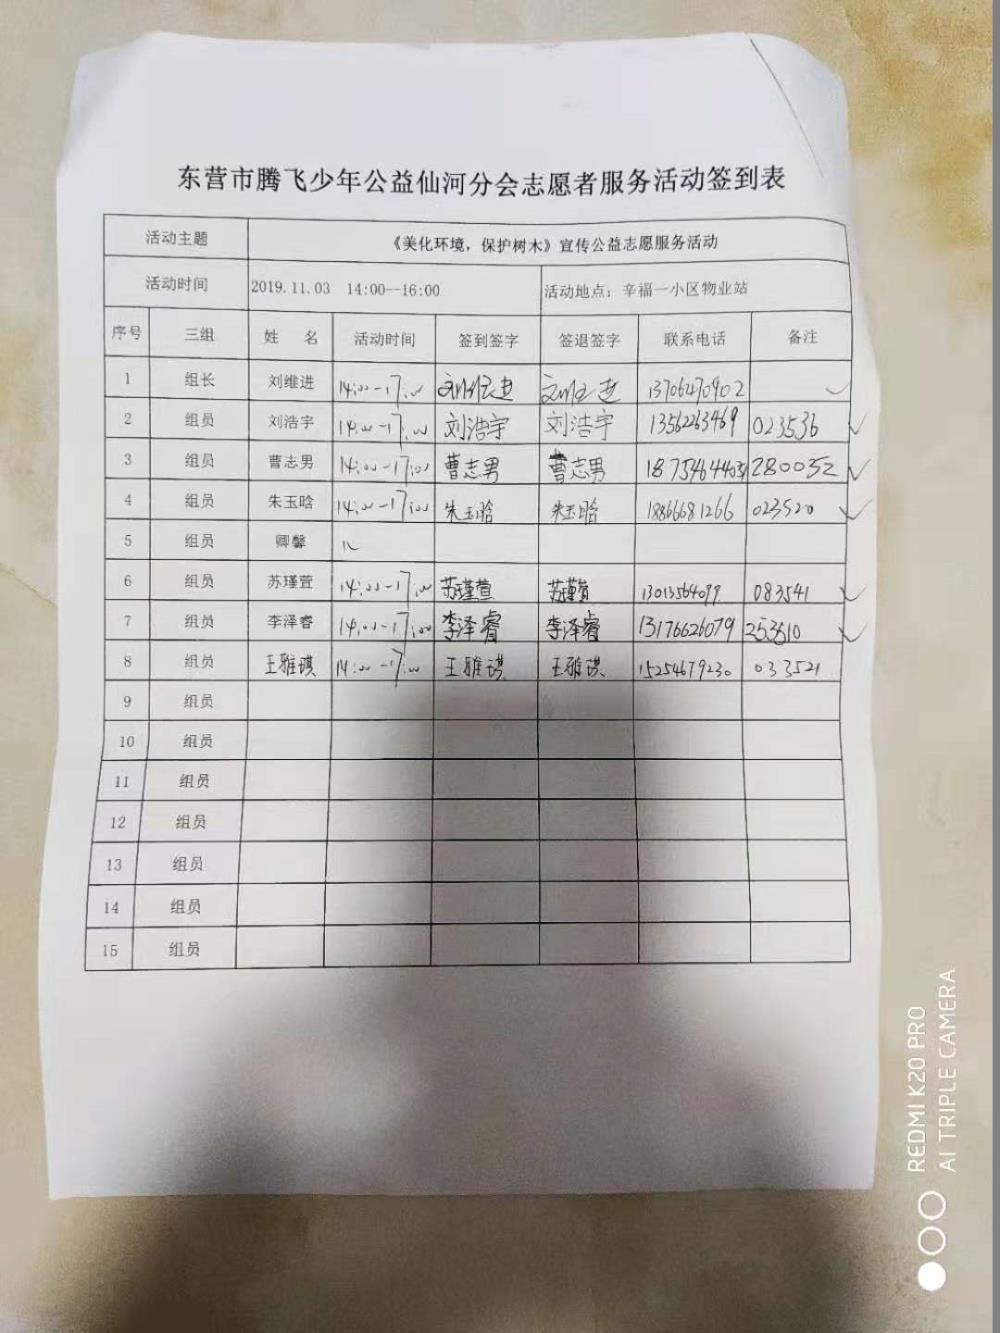 东营市腾飞少年公益仙河分会志愿者服务活动签到表
活动主题 《美化环境，保护树木》宣传公益志愿服务活动
活动时间 2019.11.03 14:00--16:00 活动地点：辛福一小区物业站
序号 三组 姓 名 活动时间 签到签字 签退签字 联系电话 备注
1 组长 刘维进 14:00-17:00 刘维进 刘维进 13706470902
2 组员 刘浩宇 14:00-17:00 刘浩宇 刘浩宇 13562263469 023536
3 组员 曹志男 14:00-17:00 曹志男 曹志男 280032
4 组员 朱玉晗 14:00-17:00 朱玉晗 朱玉晗 18866681266 023520
5 组员 卿馨
6 组员 苏瑾萱 14:00-17:00 苏瑾萱 苏瑾萱 13013564099 083541
7 组员 李泽睿 14:00-17:00 李泽睿 李泽睿 13176626079 253510
8 组员 王雅琪 14:00-17:00 王雅琪 王雅琪 15254679230 033521
9 组员
10 组员
11 组员
12 组员
13 组员
14 组员
15 组员
REDMI K20 PRO
AI TRIPLE CAMERA